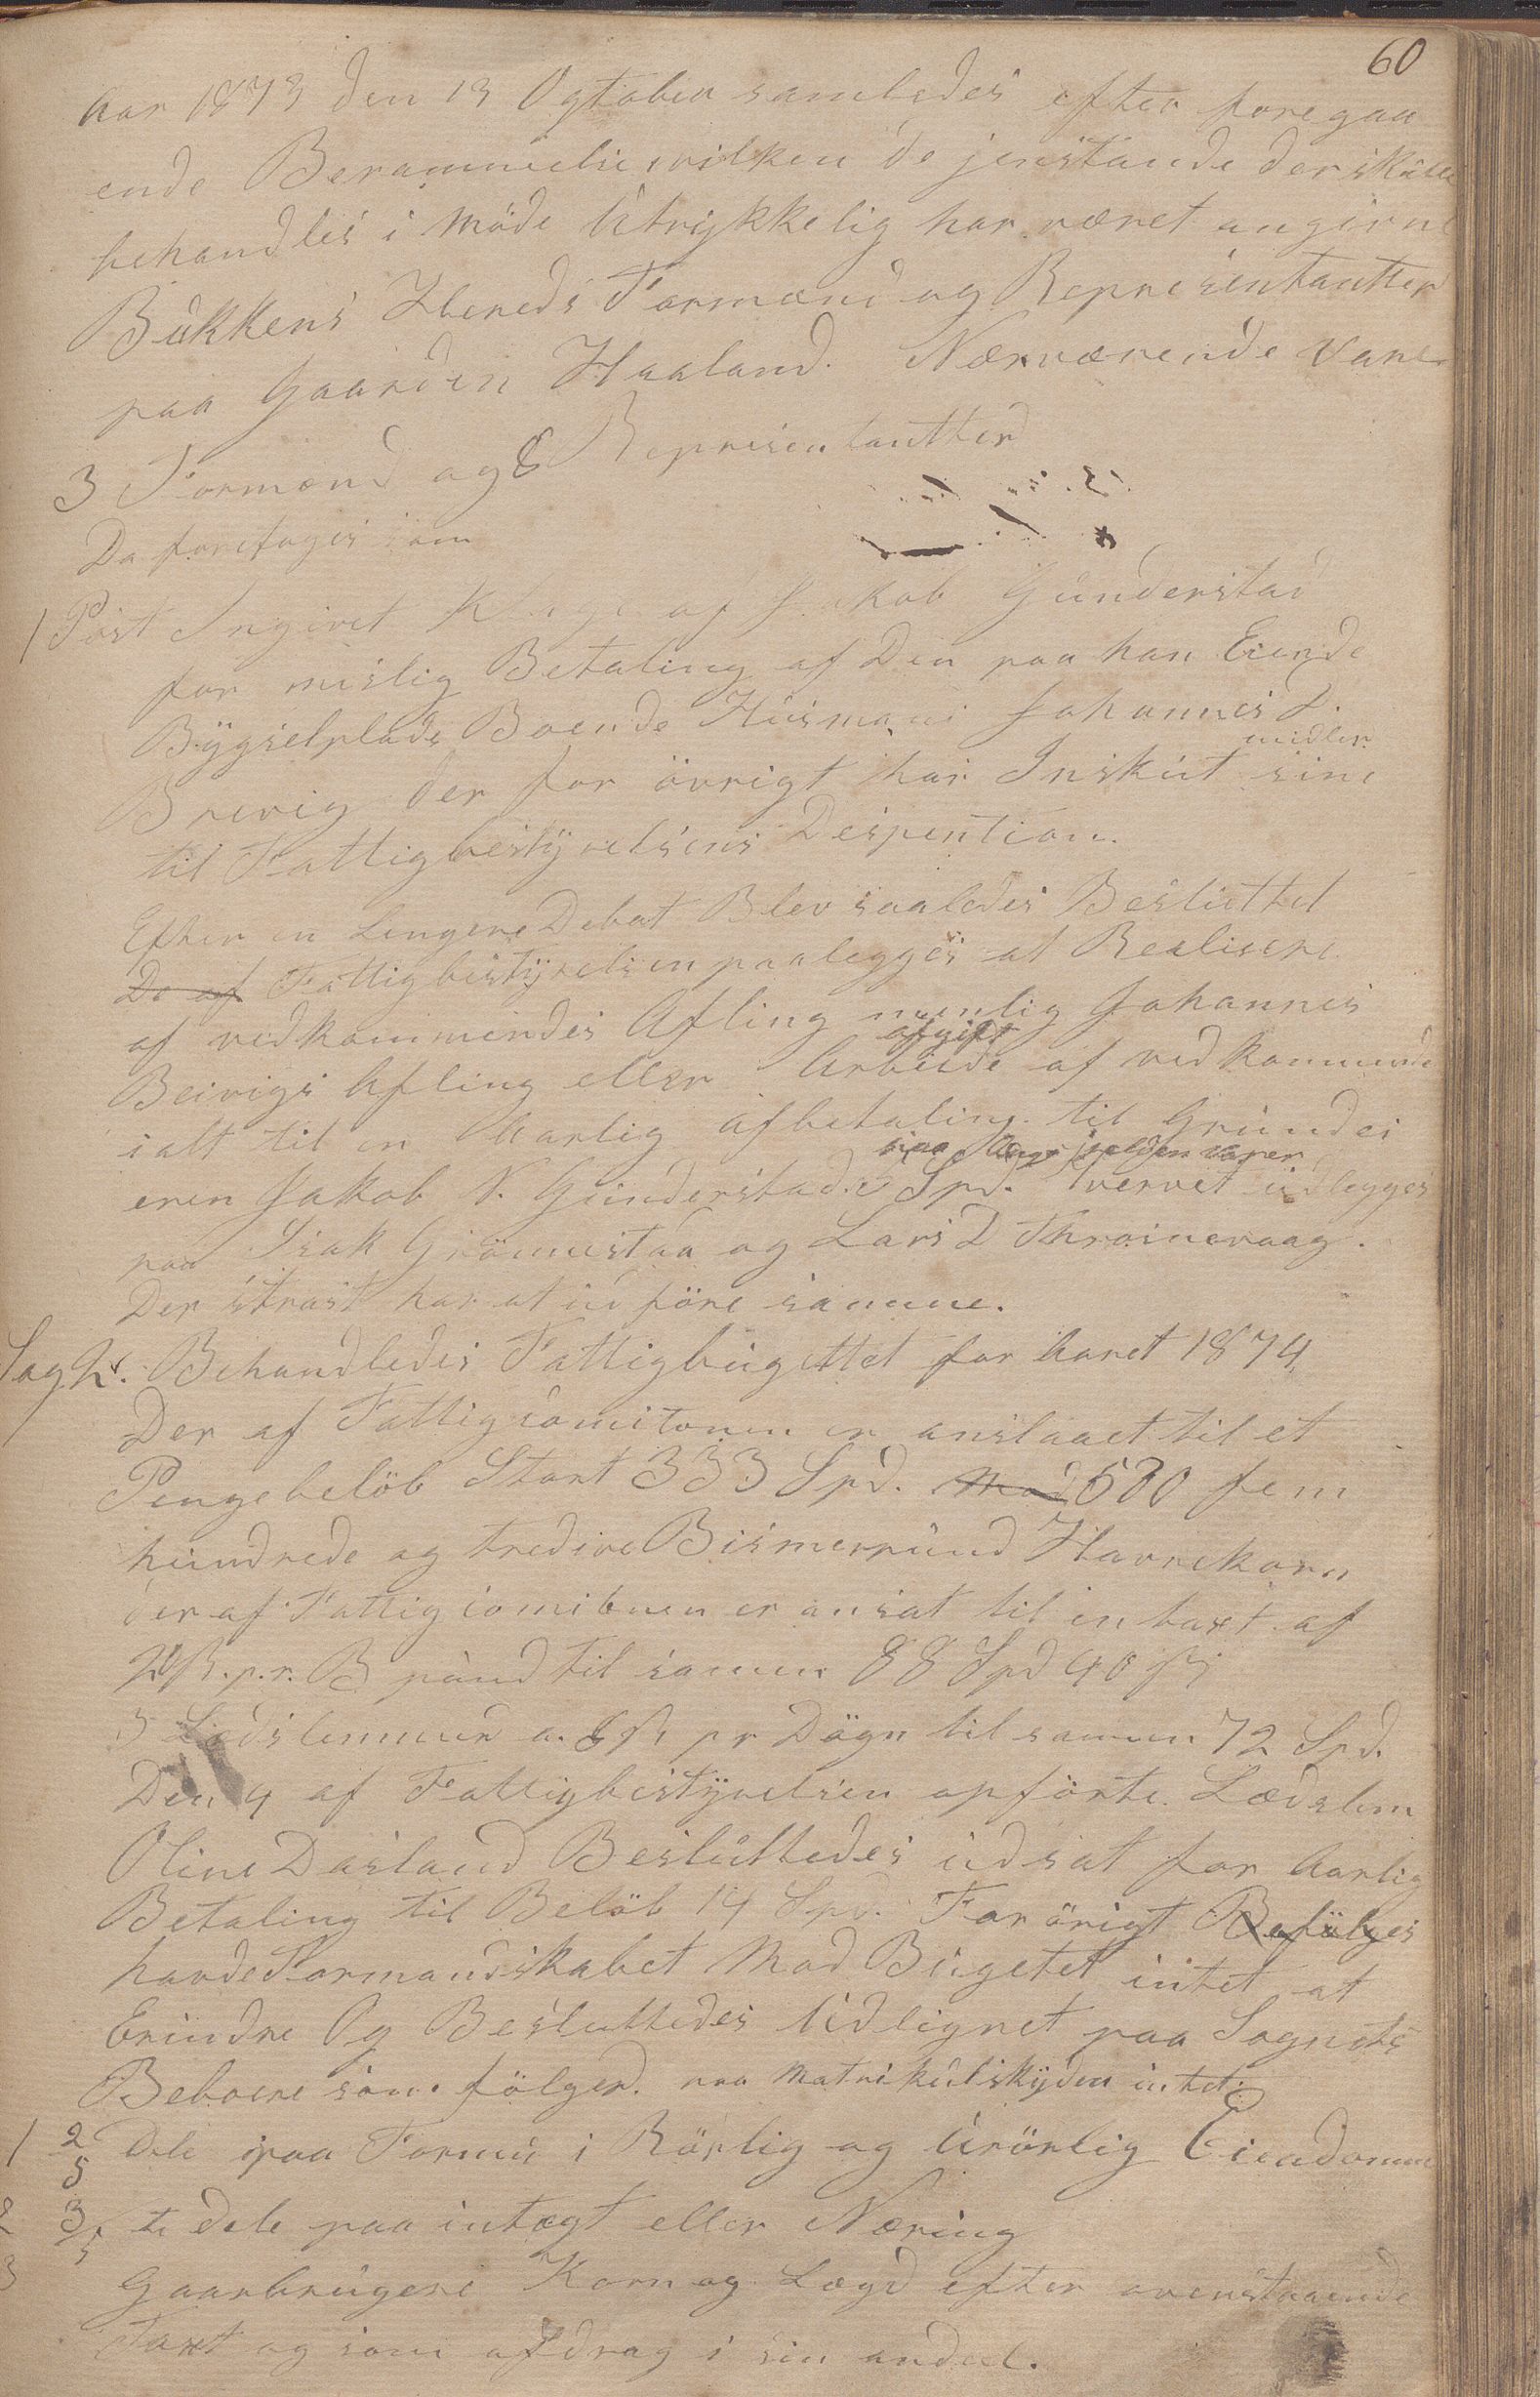 60
Aar 1873 den 13 Ogtober samledes efter foregaa
ende Berammelse, vilken de jenstande der skulle
behandles i Möde Utrykkelig har været angivne
Bukkens Hereds Formænd og Representantter
paa Gaarden Haaland. Nærværende Varer
3 Formænd og 8 Representantter
Da foretoges som
1 Post Ingivet Klage af Jakob Gunderstad
for mislig Betaling af Den paa han Eiende
Bÿgselplads Boende Husmand Johannes D.
midler
Brevig der for övrigt har Inskut sine
til Fattigbestÿrelsens Despention.
Efter en Lengere Debat Blev saaledes Besluttet
De af Fattigbestÿrelsen paalegges at Realisere
af vedkommendes Afling nemlig Johannes
afgift
Beivigs Afling eller Arbeide af vedkommende
ialt til en Aarlig afbetaling til Grundei
saa Længe jælden varer
eren Jakob N. Gunderstad Spd. Vervet udlegges
paa Isak Grönnestad og Lars D Throinevaag.
Der strast har at udföre samme.
Sag 2. Behandledes Fattigbugettet for Aaret 1874.
Der af Fattigcomitonen er anslaaet til et
Pengebelöb Stort 333 Spd. Mod 530 fem
hundrede og tredive Bismerpund Havrekorn
der af Fattigcomitonen er ansat til en taxt af
20 ß. p.r. B pund til samen 88 Spd 40 ß
3 Lædslemmer a. 8 ß pr Dögn til samen 72 Spd.
Den 4 af Fattigbestÿrelsen opförte Lædslem
Oline Dasland Besluttedes udsat for Aarlig
Betaling til Belöb 14 Spd. For örigt Befölges
havde Formandskabet Mod Bugetet intet at
Erindre Og Besluttedes Udlignet paa Sognets
Beboere som fölger. paa Matrikulskÿlden intet.
1 2/5 Dele paa Formu i Rörlig og Urörlig Eiendomme
2 3/5 te dele paa intægt eller Næring
3 Gaarbrugere Korn og Lægd efter ovenstaaende
Taxt og som afdrag i sin andeel.